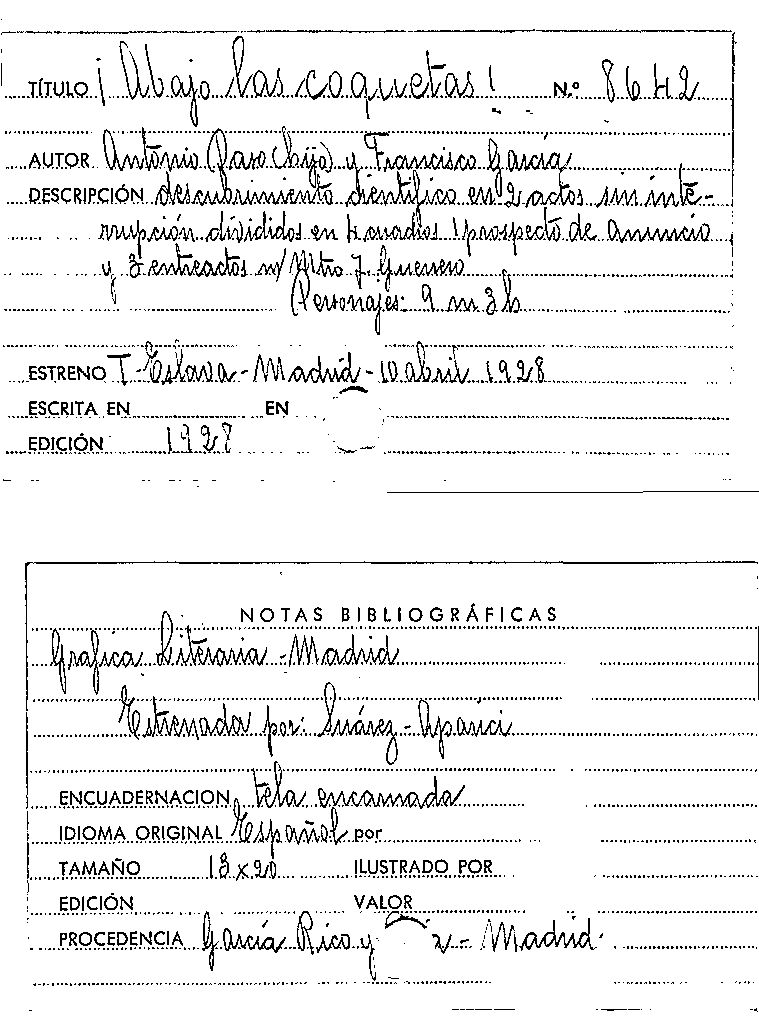 TÍTULO ¡Abajo las coquetas! N.º 8642
AUTOR Antonio Paso (hijo) y Francisco García
DESCRIPCIÓN descubrimiento científico en 2 actos sin inte-
rrupción divididos en 4 cuadros 1 prospecto de anuncio
y 3 entreactos m/ Mtro J. Guerrero
Personajes: 9 m 3 h
ESTRENO T-Eslava-Madrid-10 abril 1928
ESCRITA EN EN
EDICIÓN 1927
NOTAS BIBLIOGRÁFICAS
Grafica Literaria-Madrid
Estrenada por: Suárez-Aparici
ENCUADERNACION tela encarnada
IDIOMA ORIGINAL Español por
TAMAÑO 13x20 ILUSTRADO POR
EDICIÓN VALOR
PROCEDENCIA García Rico y - Madrid.